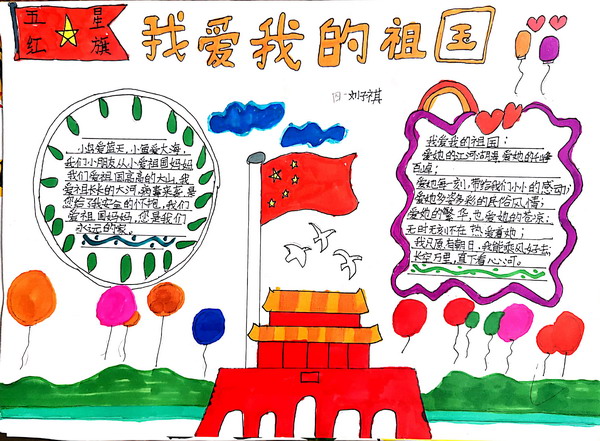 五星
红旗
我爱我的祖国
四一刘子祺
小鸟爱蓝天，小鱼爱大海，
我们小朋友从小爱祖国妈妈
我们爱祖国高高的大山，我
爱祖长长的大河，病毒来袭，是
您给了我安全的怀抱，我们
爱祖国妈妈，您是我们
永远的家。
我爱我的祖国：
爱她的江河湖海，爱她的千峰
百嶂；
爱她每一刻，带给我们小小的感动；
爱她多姿多彩的民俗风情；
爱她的繁华也爱她的苍凉；
无时无刻不在热爱着她；
我只愿有朝日，我能乘风好去，
长空万里，直下看山河。